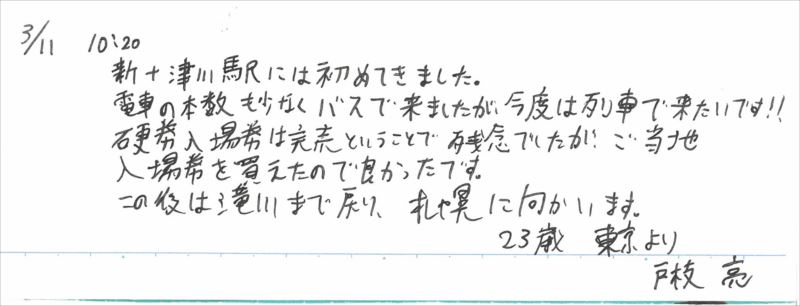 3/11 10:20
新十津川駅には初めてきました。
電車の本数も少なくバスで来ましたが、今度は列車で来たいです!!
硬券入場券は完売ということで残念でしたが、ご当地
入場券を買えたので良かったです。
この後は滝川まで戻り、札幌に向かいます。
23歳 東京より
戸枝 亮